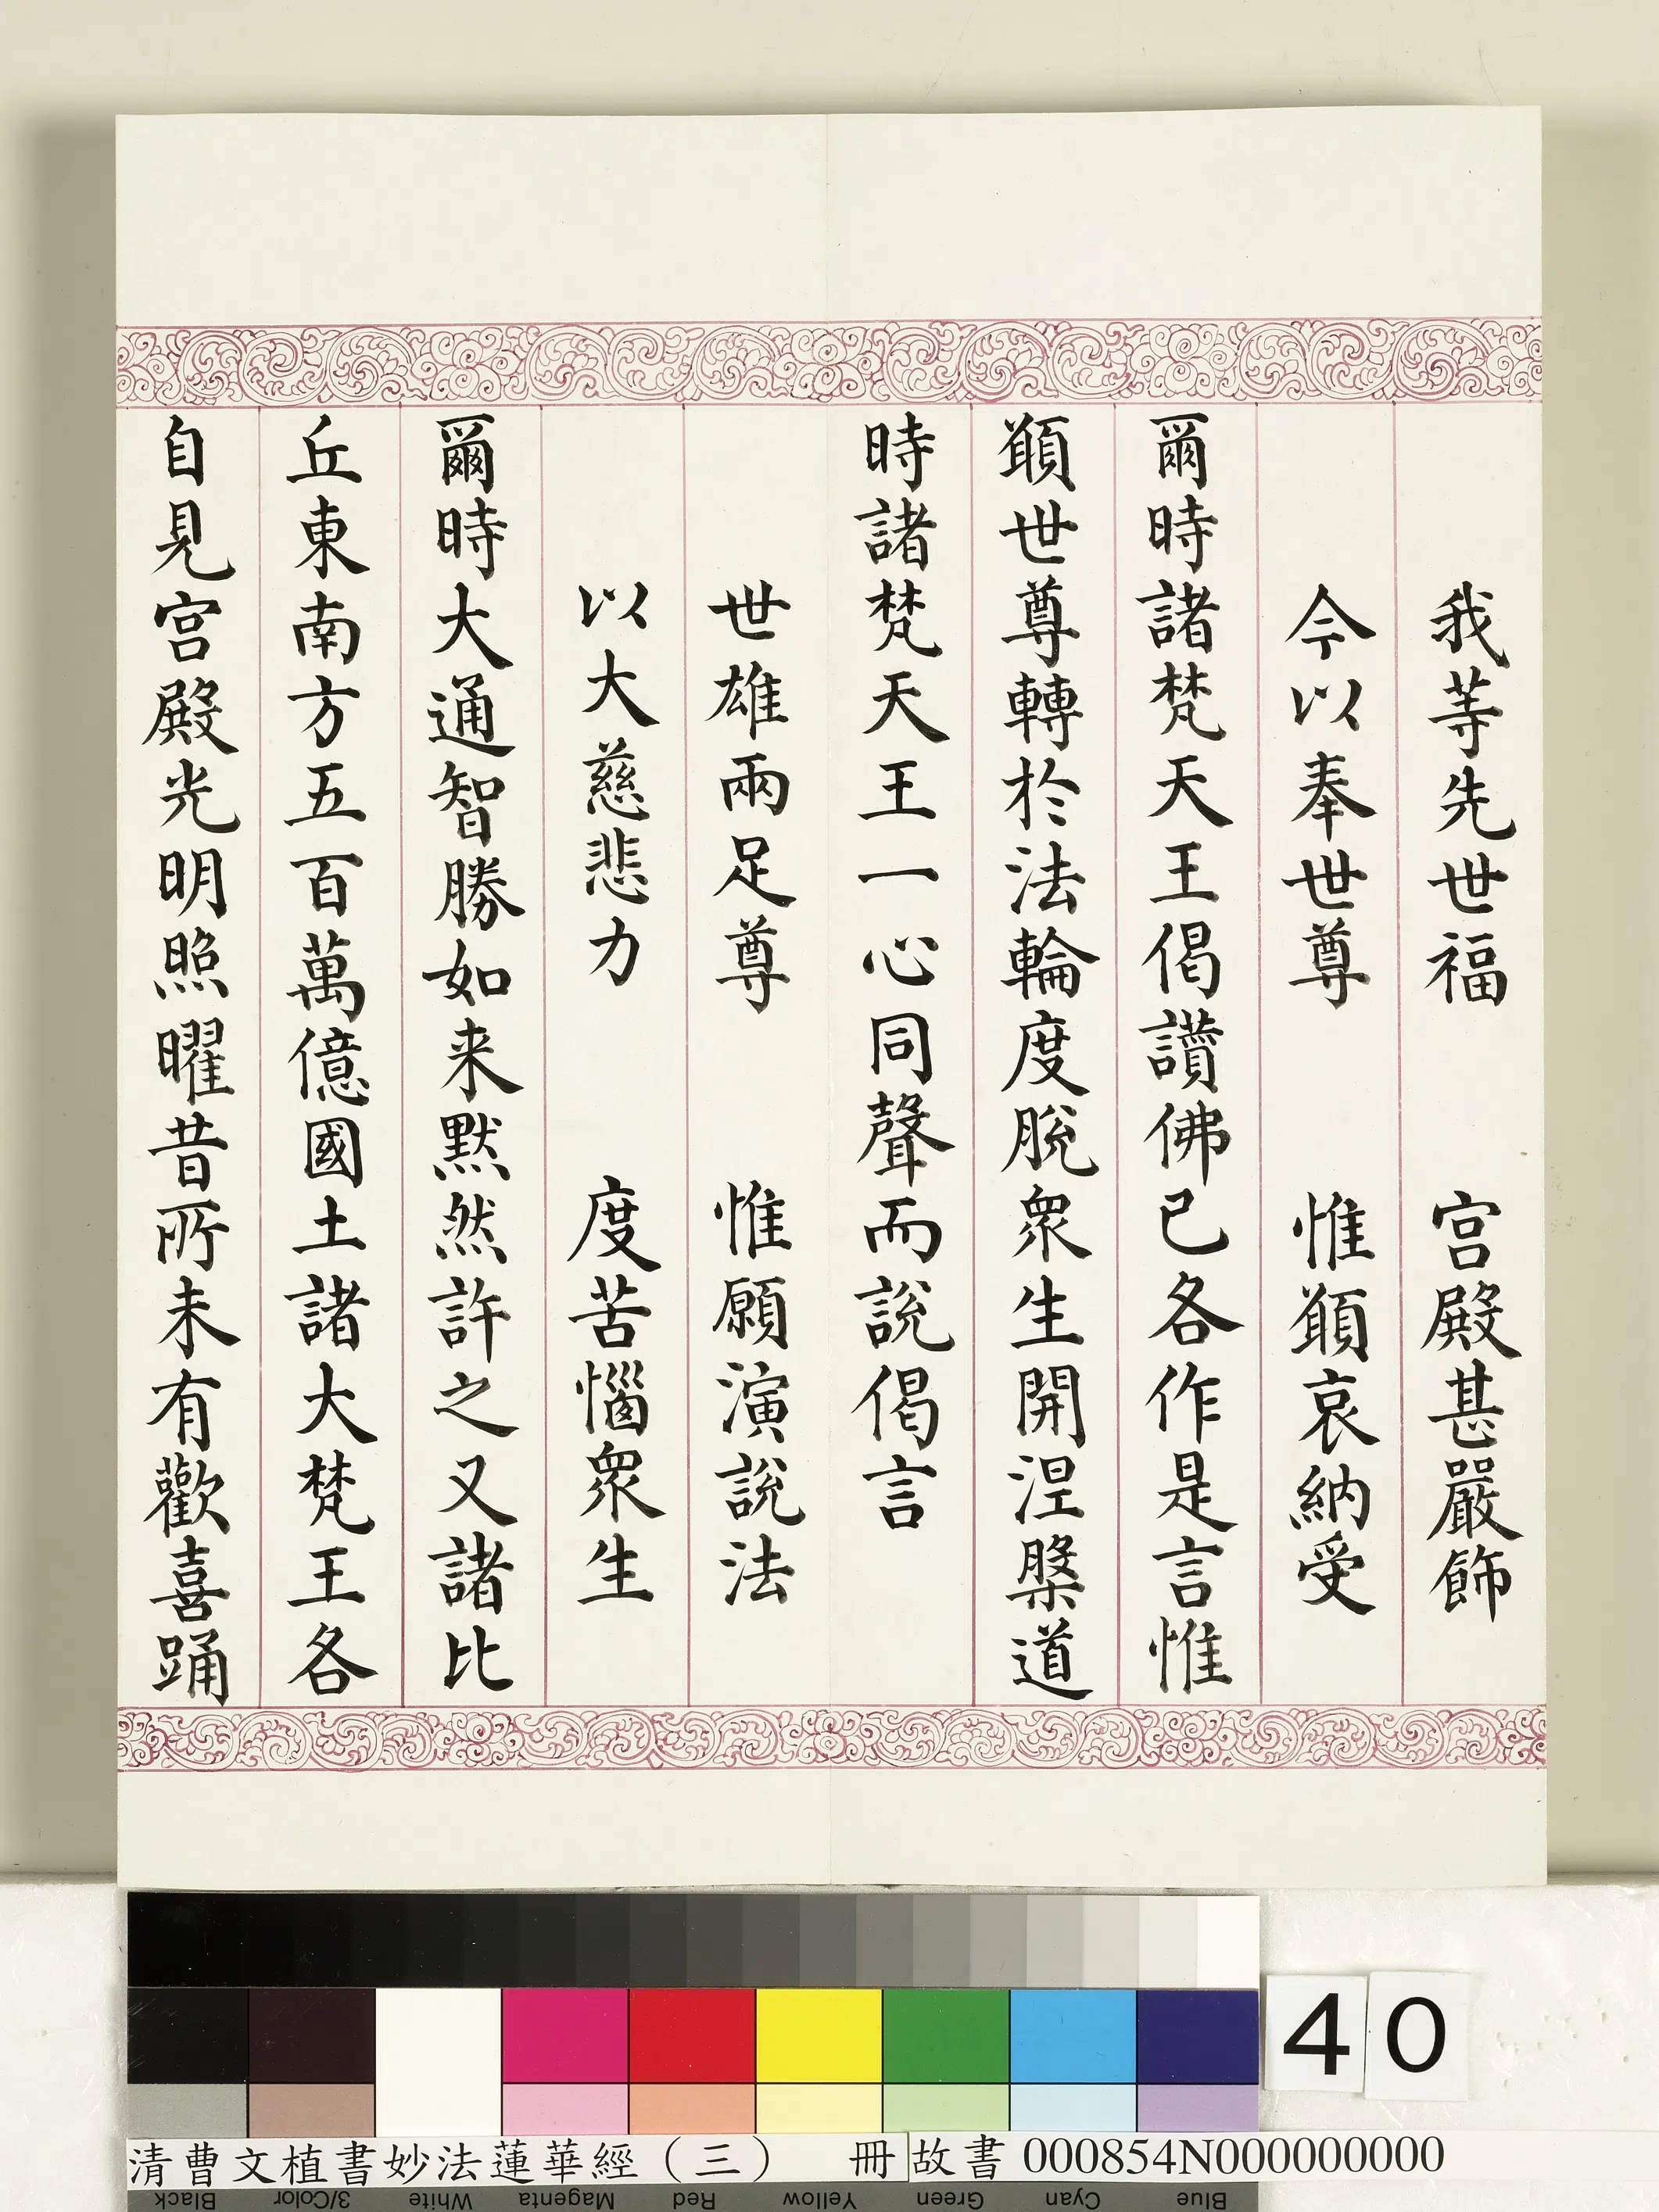 我等先世福　宮殿甚嚴飾
今以奉世尊　惟顓哀納受
爾時諸梵天王偈讚佛已各作是言惟
顓世尊轉於法輪度脫衆生開涅槃道
時諸梵天王一心同聲而說偈言
世雄兩足尊　惟願演說法
以大慈悲力　度苦惱衆生
爾時大通智勝如来默然許之又諸比
丘東南方五百萬億國土諸大梵王各
自見宮殿光明照曜昔所未有歡喜踊
40
清曹文植書妙法蓮華經（三）　冊 故書 000854N000000000
Black 3/Color White Magenta Red Yellow Green Cyan Blue